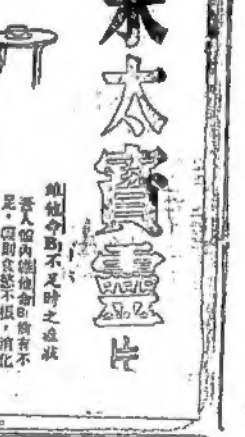 米太寶靈片
維他命B1不足時之症狀
吾人體內維他命B1倘有不
足，則食慾不振，消化